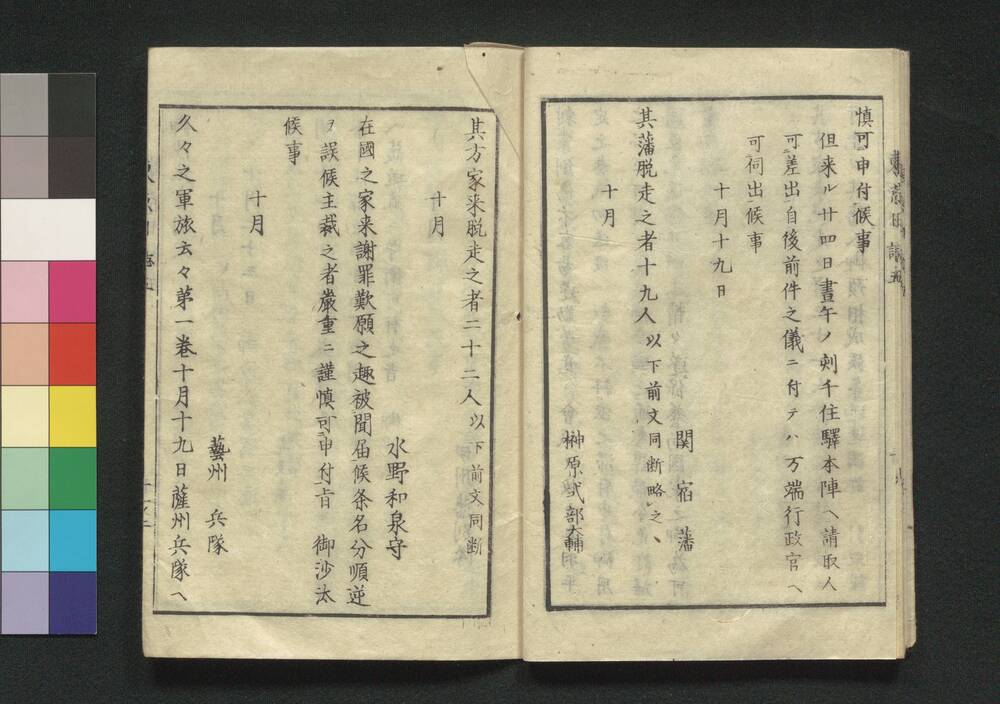 慎可申付候事
但来ル廿四日晝午ノ刻千住驛本陣ヘ請取人
可差出自後前件之儀ニ付テハ万端行政官ヘ
可伺出候事
十月十九日
関宿藩
其藩脱走之者十九人以下前文同断略之、
十月
榊原式部大輔
其方家来脱走之者二十二人以下前文同断
十月
水野和泉守
在國之家来謝罪歎願之趣被聞届候条名分順逆
ヲ誤候主裁之者嚴重ニ謹慎可申付旨 御沙汰
候事
十月
藝州 兵隊
久々之軍旅云々第一巻十月十九日薩州兵隊ヘ